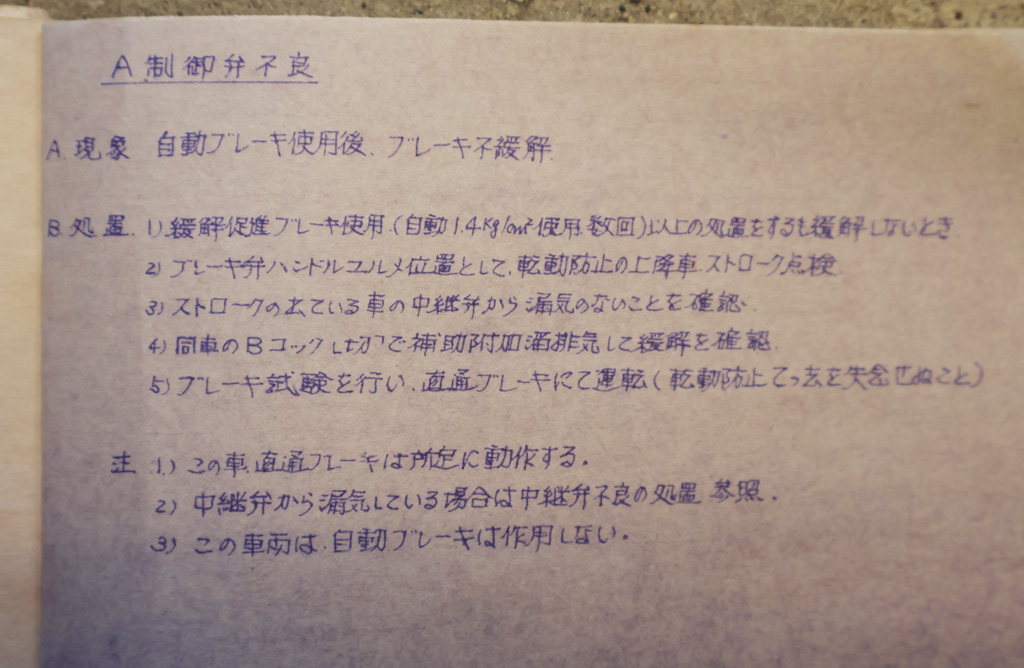 A 制御弁不良
A. 現象 自動ブレーキ使用後、ブレーキ不緩解.
B. 処置. 1) 緩解促進ブレーキ使用.(自動1.4Kg/cm²使用.数回)以上の処置をするも緩解しないとき.
2) ブレーキ弁ハンドルユルメ位置として、転動防止の上降車.ストローク点検
3) ストロークの出ている車の中継弁から漏気のないことを確認.
4) 同車のBコック切で補助附加溜排気して緩解を確認.
5) ブレーキ試験を行い、直通ブレーキにて運転(転動防止てっ去を失念せぬこと)
注 1.) この車.直通ブレーキは所定に動作する.
2) 中継弁から漏気している場合は中継弁不良の処置 参照.
3) この車両は.自動ブレーキは作用しない.